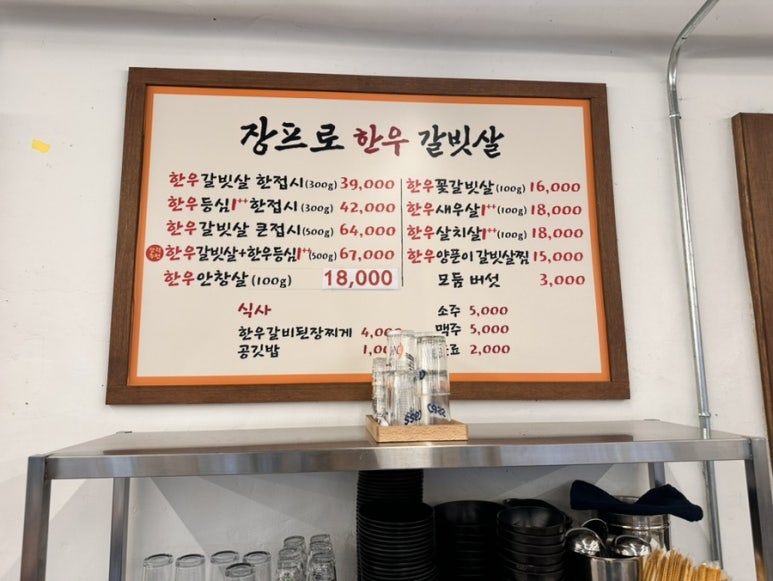 장프로 한우 갈빗살
한우갈빗살 한접시(300g) 39,000
한우등심1++한접시(300g) 42,000
한우갈빗살 큰접시(500g) 64,000
한우갈빗살+한우등심1++(500g) 67,000
한우안창살(100g) 18,000
한우꽃갈빗살(100g) 16,000
한우새우살1++(100g) 18,000
한우살치살1++(100g) 18,000
한우양푼이갈빗살찜 15,000
모듬 버섯 3,000
식사
한우갈비된장찌게 4,000
공깃밥 1,000
소주 5,000
맥주 5,000
료 2,000